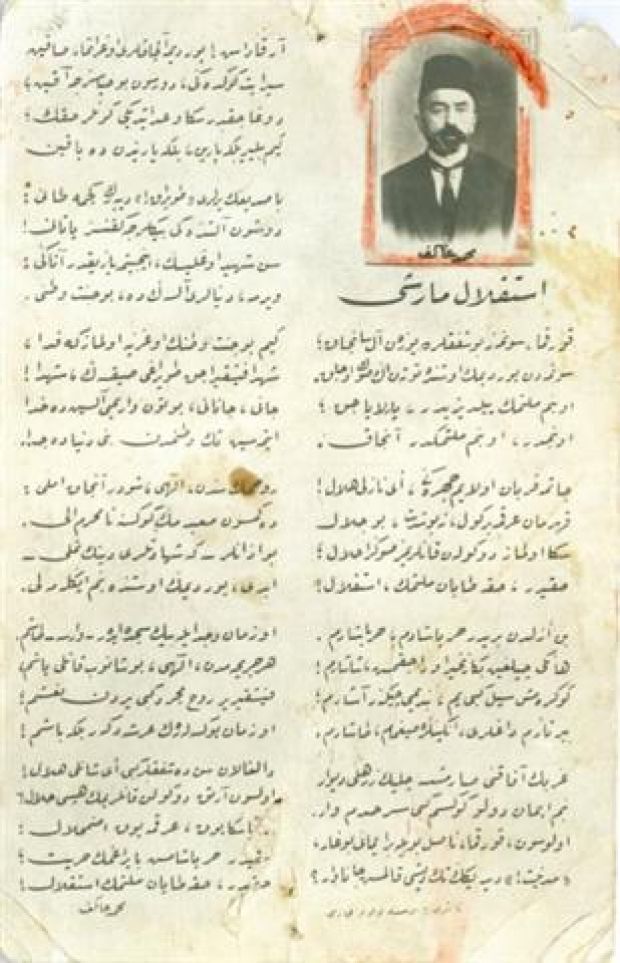 محمد عاكف
استقلال مارشی
قورقما، سونمز بو شفقلرده يوزن آل سانجاق؛
سونمه‌دن يورديمك اوستنده توتن اك صوك اوجاق.
او بنم ملتمك ييلديزيدر، پارلاياجق؛
او بنمدر، او بنم ملتمكدر آنجاق.
چاتمه قربان اولايم چهره‌كی، أی نازلی هلال!
قهرمان عرقمه بر كول، نه بو شدت، بو جلال
سكا اولماز دوكولن قانلريمز صوكرا حلال؛
حقيدر، حقه طاپان ملتمك، استقلال!
بن أزلدن بريدر حر ياشادم، حر ياشارم.
هانكی چيلغين بكا زنجير اوراجقمش، شاشارم!
كوكره‌مش سيل كبی يم، بندمی چيكنر آشارم؛
ييرتارم داغلری، انكينلره صيغمام، طاشارم.
غربك آفاقنی صارمشسه چليك زرهلی ديوار
بنم ايمان دولو كوكسم كبی سرحدم وار.
اولوسون، قورقما، ناصل بويله بر ايمانی بوغار،
«مدنيت!» ديديكك تك ديشی قالمش جاناوار؟
آرقاداش! يورديمه آلچاقلری اوغراتما، صاقين
سپر ايت كوكده‌كی، دورسون بو حياسزجه آقين؛
دوغاجقدر سكا وعد ايتديكی كونلر حقك؛
كيم بيلير، بلكه يارين، بلكه ياريندن ده ياقين
باصديغك يرلری «طوپراق!» ديه‌رك كچمه، طانی؛
دوشون آلتنده‌كی بيكلرجه كفنسز ياتانی!
سن شهيد اوغليسك، اينجيتمه، يازيقدر آتاكی؛
ويرمه، دنيالری آلسه‌ك ده، بو جنت وطنی.
كيم بو جنت وطنك اوغرينه اولماز كه فدا،
شهدا فيشقيراجق طوپراغی صيقسه‌ك، شهدا!
جانی، جانانی، بوتون واريمی آلسين ده خدا
ايتمه‌سين تك وطنمدن بنی دنياده جدا.
روحمك سندن، الهی، شودر آنجاق املی:
دكمه‌سين معبديمك كوكسنه نامحرم الی.
بو اذانلر ـ كه شهادتلری دينك تملی ـ
ابدی، يورديمك اوستنده بنم ايكله‌ملی.
او زمان وجد ايله بيك سجده ايدر ـ وارسه ـ طاشم.
هر جريحه‌مدن، الهی، بوشانوب قانلی ياشم،
فيشقيرير روح مجرد كبی يردن نعشم!
او زمان يوكسله‌رك عرشه دكر بلكه باشم!
دالغالان سن ده شفقلر كبی أی شانلی هلال!
اولسون آرتق دوكولن قانلريمك هپسی حلال!
ابديا سكا يوق، عرقمه يوق اضمحلال:
حقيدر، حر ياشامش بايراغمك حريت؛
حقيدر، حقه طاپان ملتمك استقلال!
محمد عاكف